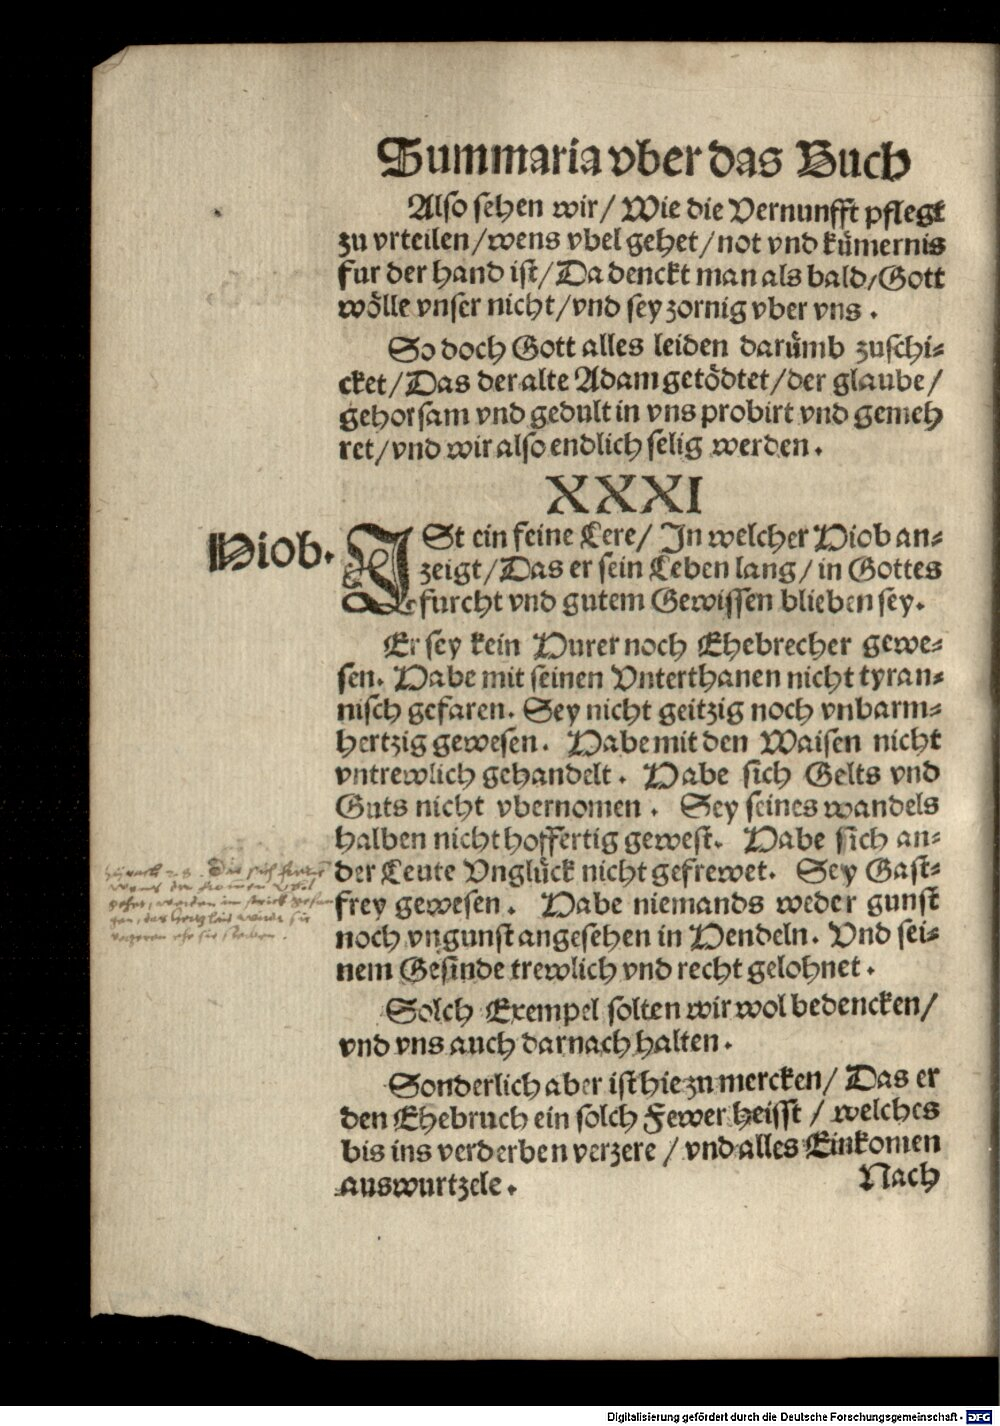 Summaria vber das Buch
Also sehen wir/ Wie die Vernunfft pflegt
zu vrteilen/wens vbel gehet/not vnd kümernis
fur der hand ist/Da denckt man als bald/Gott
wölle vnser nicht/vnd sey zornig vber vns.
So doch Gott alles leiden darümb zuschi-
cket/Das der alte Adam getödtet/der glaube/
gehorsam vnd gedult in vns probirt vnd gemeh
ret/vnd wir also endlich selig werden.
XXXI
Hiob.
ISt ein feine Lere/ In welcher Hiob an-
zeigt/Das er sein Leben lang/in Gottes
furcht vnd gutem Gewissen blieben sey.
Er sey kein Hurer noch Ehebrecher gewe-
sen. Habe mit seinen Vnterthanen nicht tyran-
nisch gefaren. Sey nicht geitzig noch vnbarm-
hertzig gewesen. Habe mit den Waisen nicht
vntrewlich gehandelt. Habe sich Gelts vnd
Guts nicht vbernomen. Sey seines wandels
halben nicht hoffertig gewest. Habe sich an-
der Leute Vnglück nicht gefrewet. Sey Gast-
frey gewesen. Habe niemands weder gunst
noch vngunst angesehen in Hendeln. Vnd sei-
nem Gesinde trewlich vnd recht gelohnet.
Solch Exempel solten wir wol bedencken/
vnd vns auch darnach halten.
Sonderlich aber ist hie zu mercken/ Das er
den Ehebruch ein solch Fewer heisst/ welches
bis ins verderben verzere/ vnd alles Einkomen
auswurtzele.
Nach
Digitalisierung gefördert durch die Deutsche Forschungsgemeinschaft - DFG